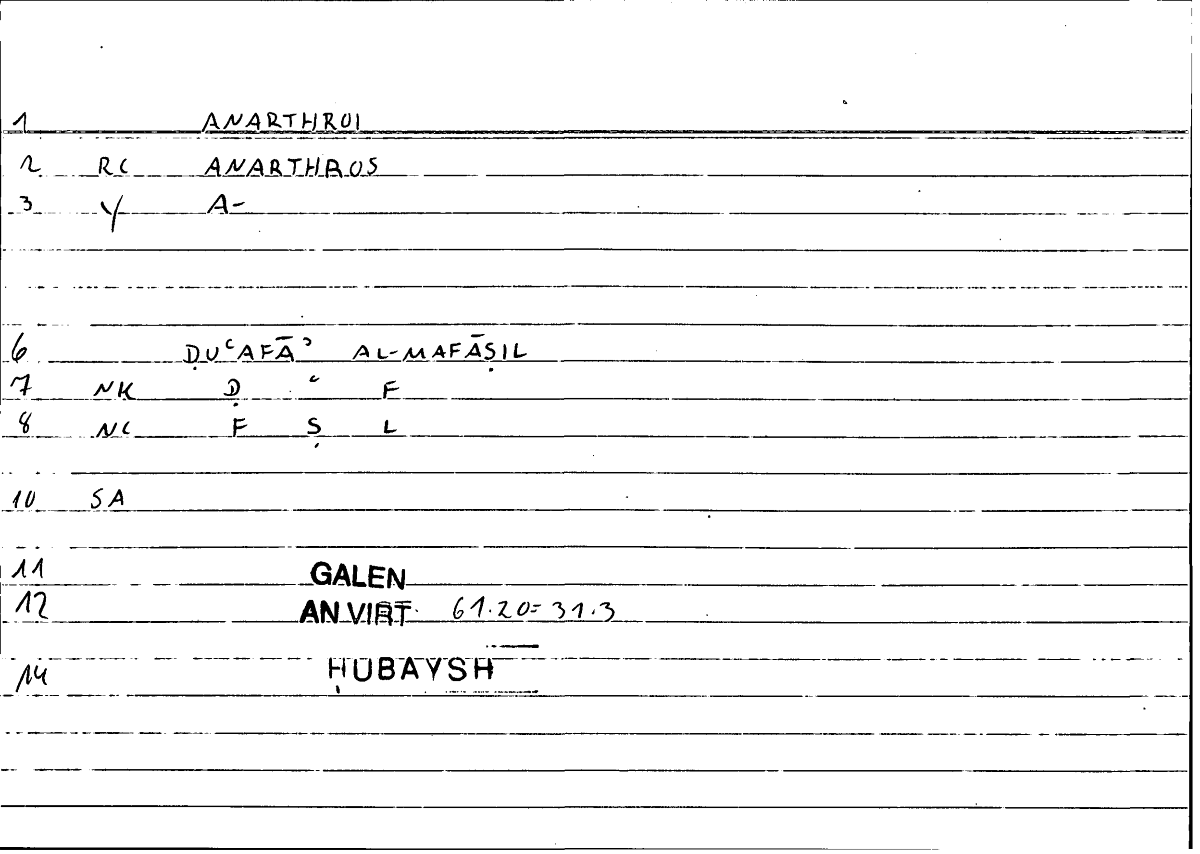 1 ANARTHROI
2 RC ANARTHROS
3 Y A-
6 ḌUʿAFĀʾ AL-MAFĀṢIL
7 NK Ḍ ʿ F
8 NC F Ṣ L
10 SA
11 GALEN
12 AN VIRT 61.20=31.3
14 ḤUBAYSH